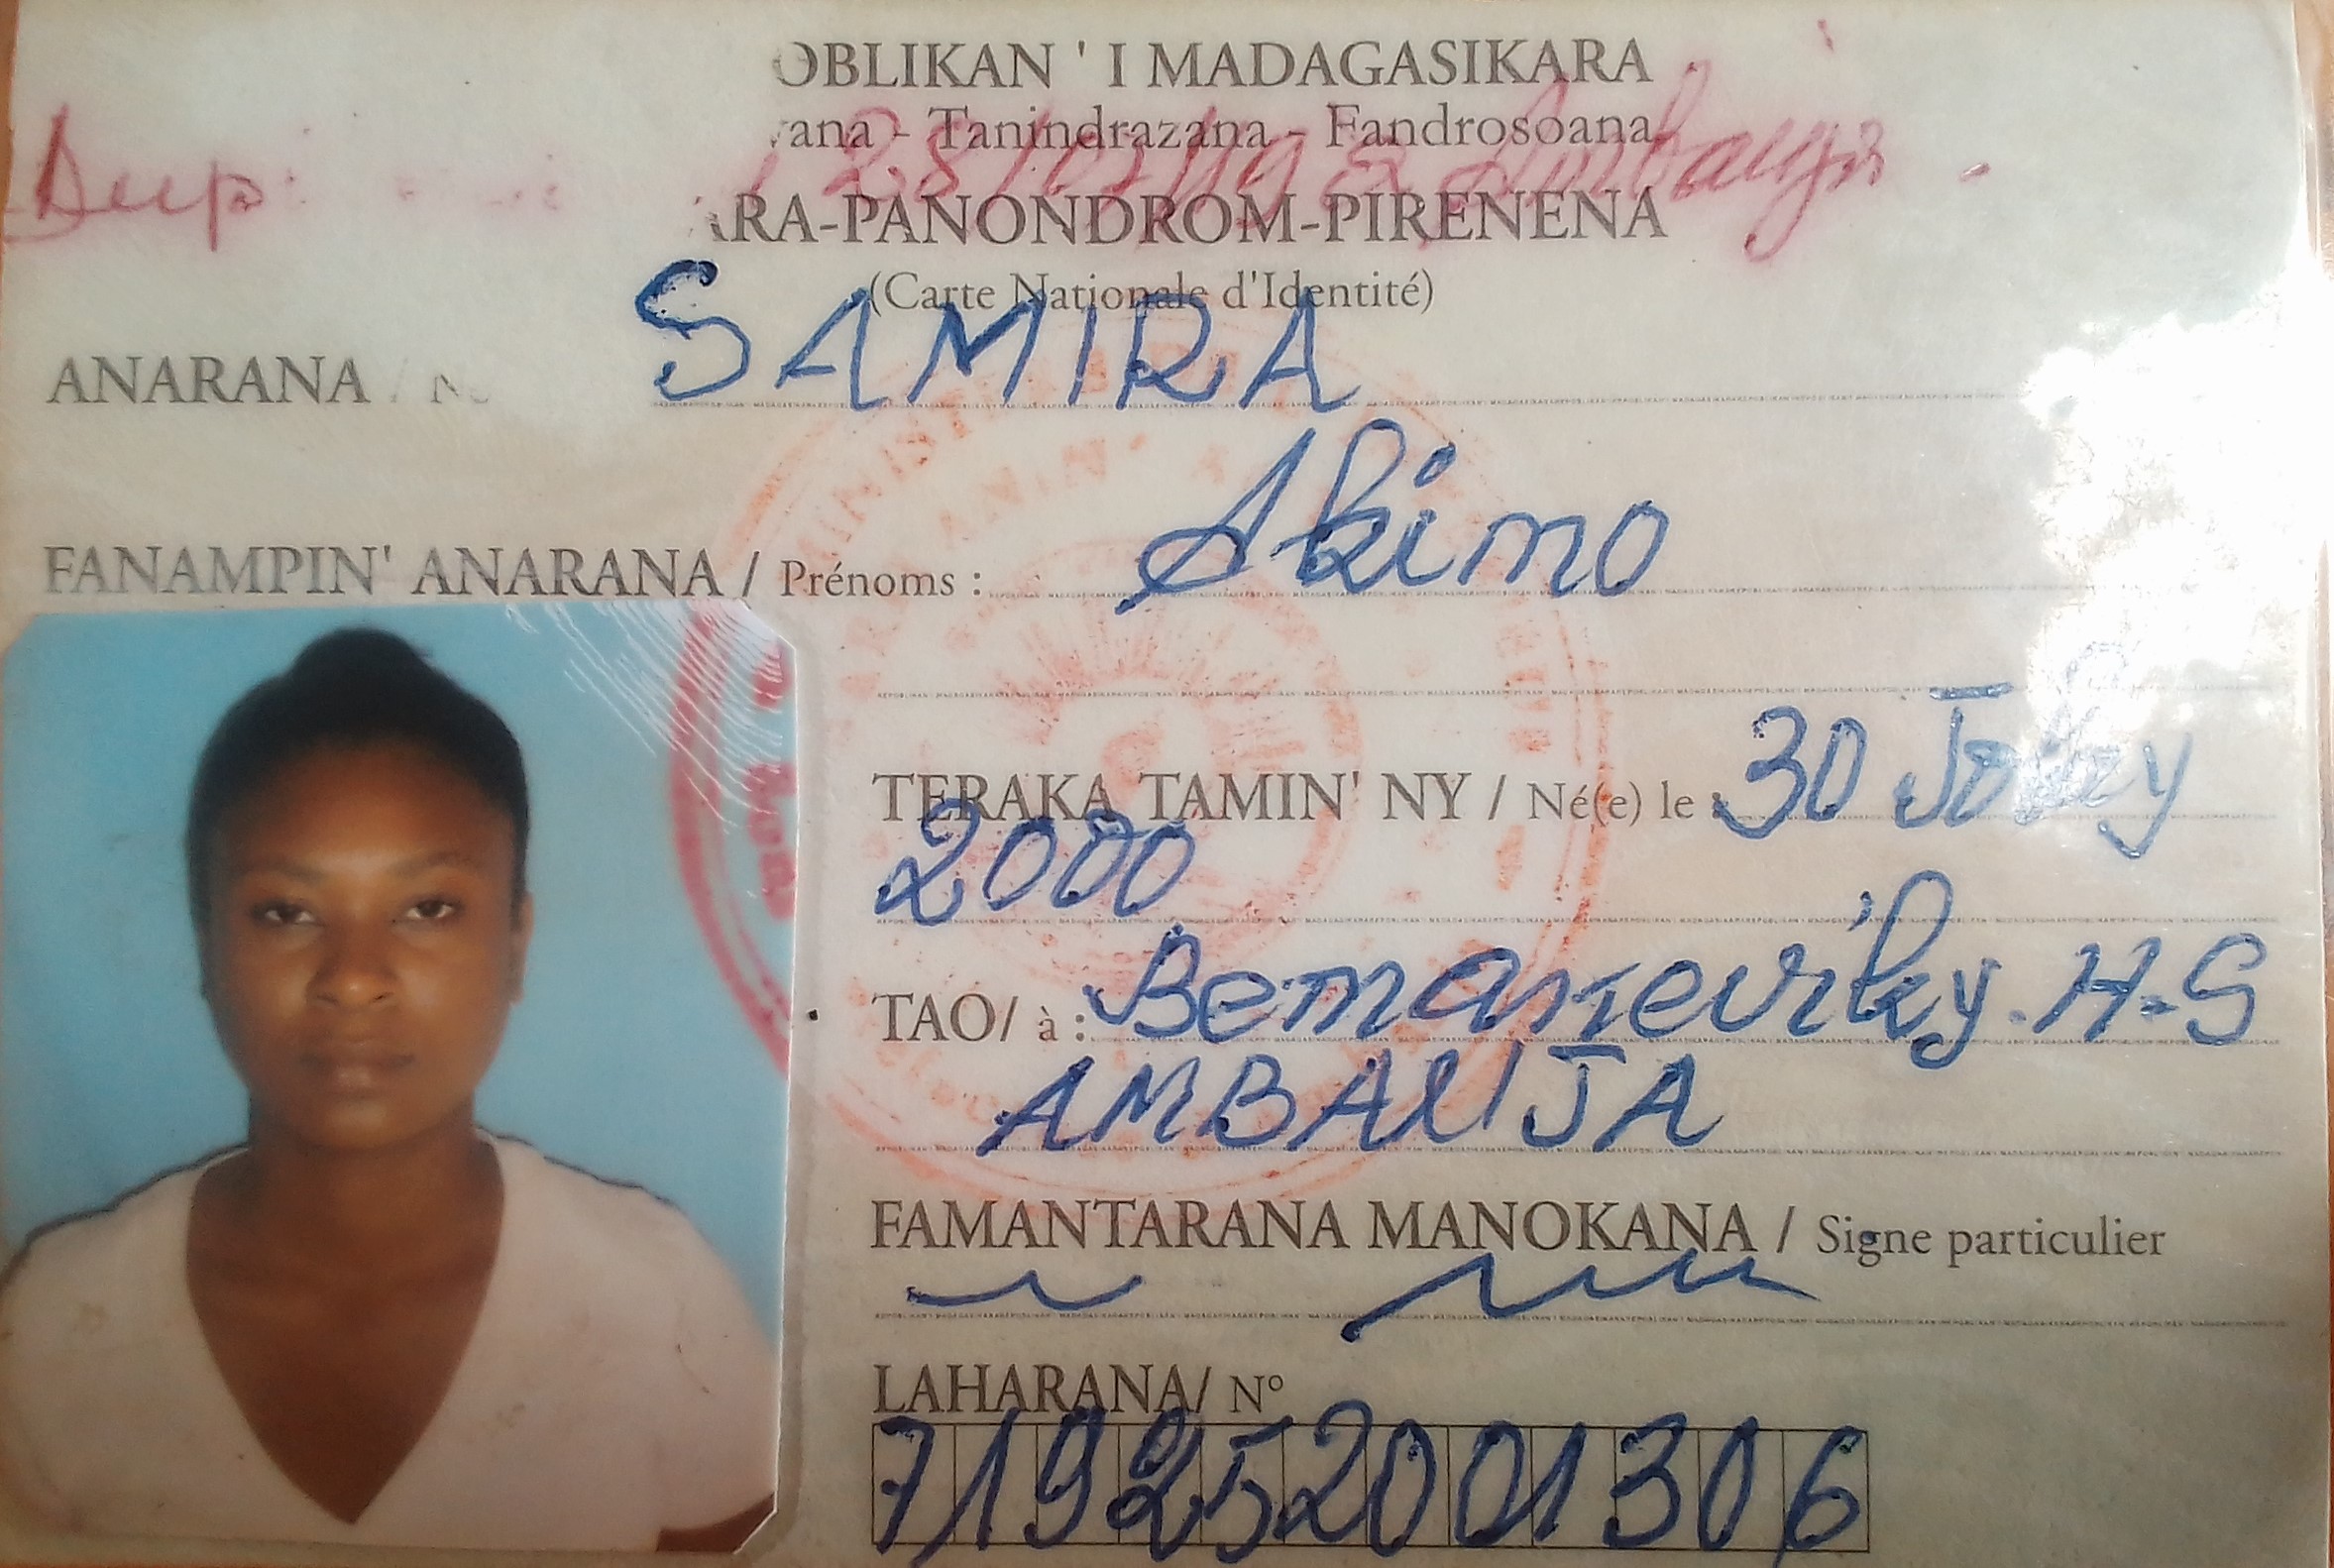 OBLIKAN ' I MADAGASIKARA
Tanindrazana - Fandrosoana
RA-PANONDROM-PIRENENA
(Carte Nationale d'Identité)
ANARANA / SAMIRA
FANAMPIN' ANARANA / Prénoms : Akimo
TERAKA TAMIN' NY / Né(e) le : 30 Jolay
2000
TAO/ à : Bemaneviky . H-S
AMBANJA
FAMANTARANA MANOKANA / Signe particulier
LAHARANA/ N°
719252001306